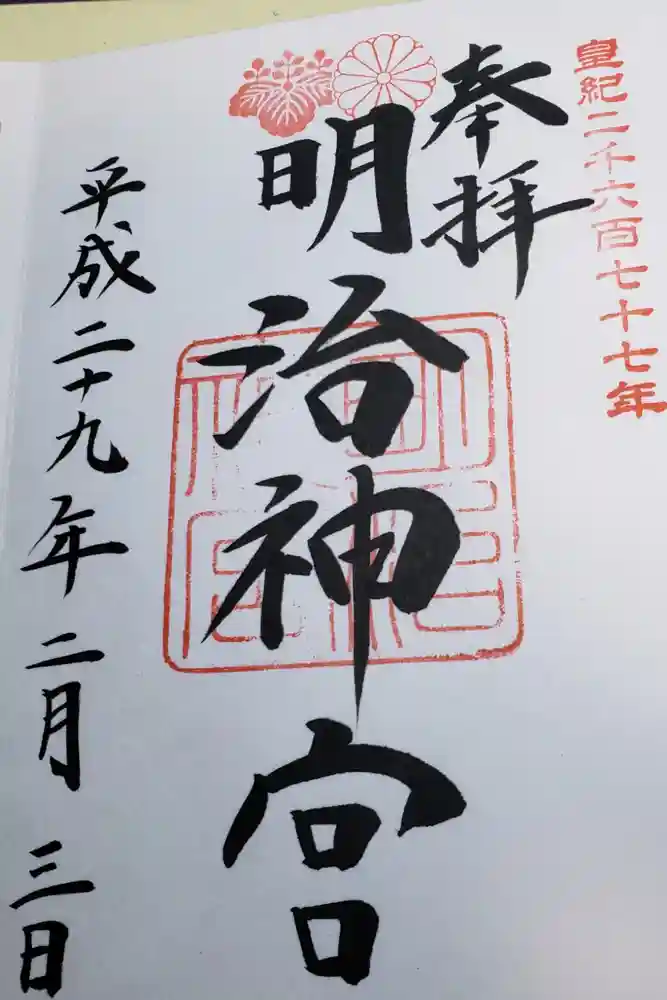 皇紀二千六百七十七年
奉拝
明治神宮
平成二十九年二月三日
明治神宮